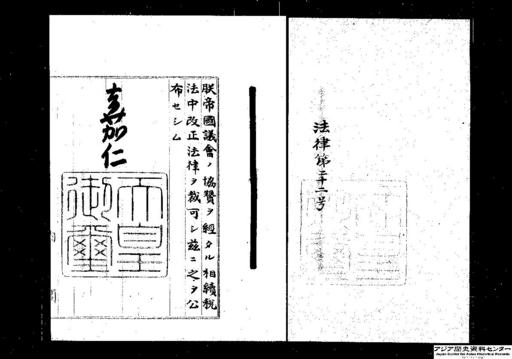 法律第二十二号
朕帝國議會ノ協贊ヲ經タル相續税
法中改正法律ヲ裁可シ茲ニ之ヲ公
布セシム
嘉仁
天皇
御璽
アジア歴史資料センター
Japan Center for Asian Historical Records